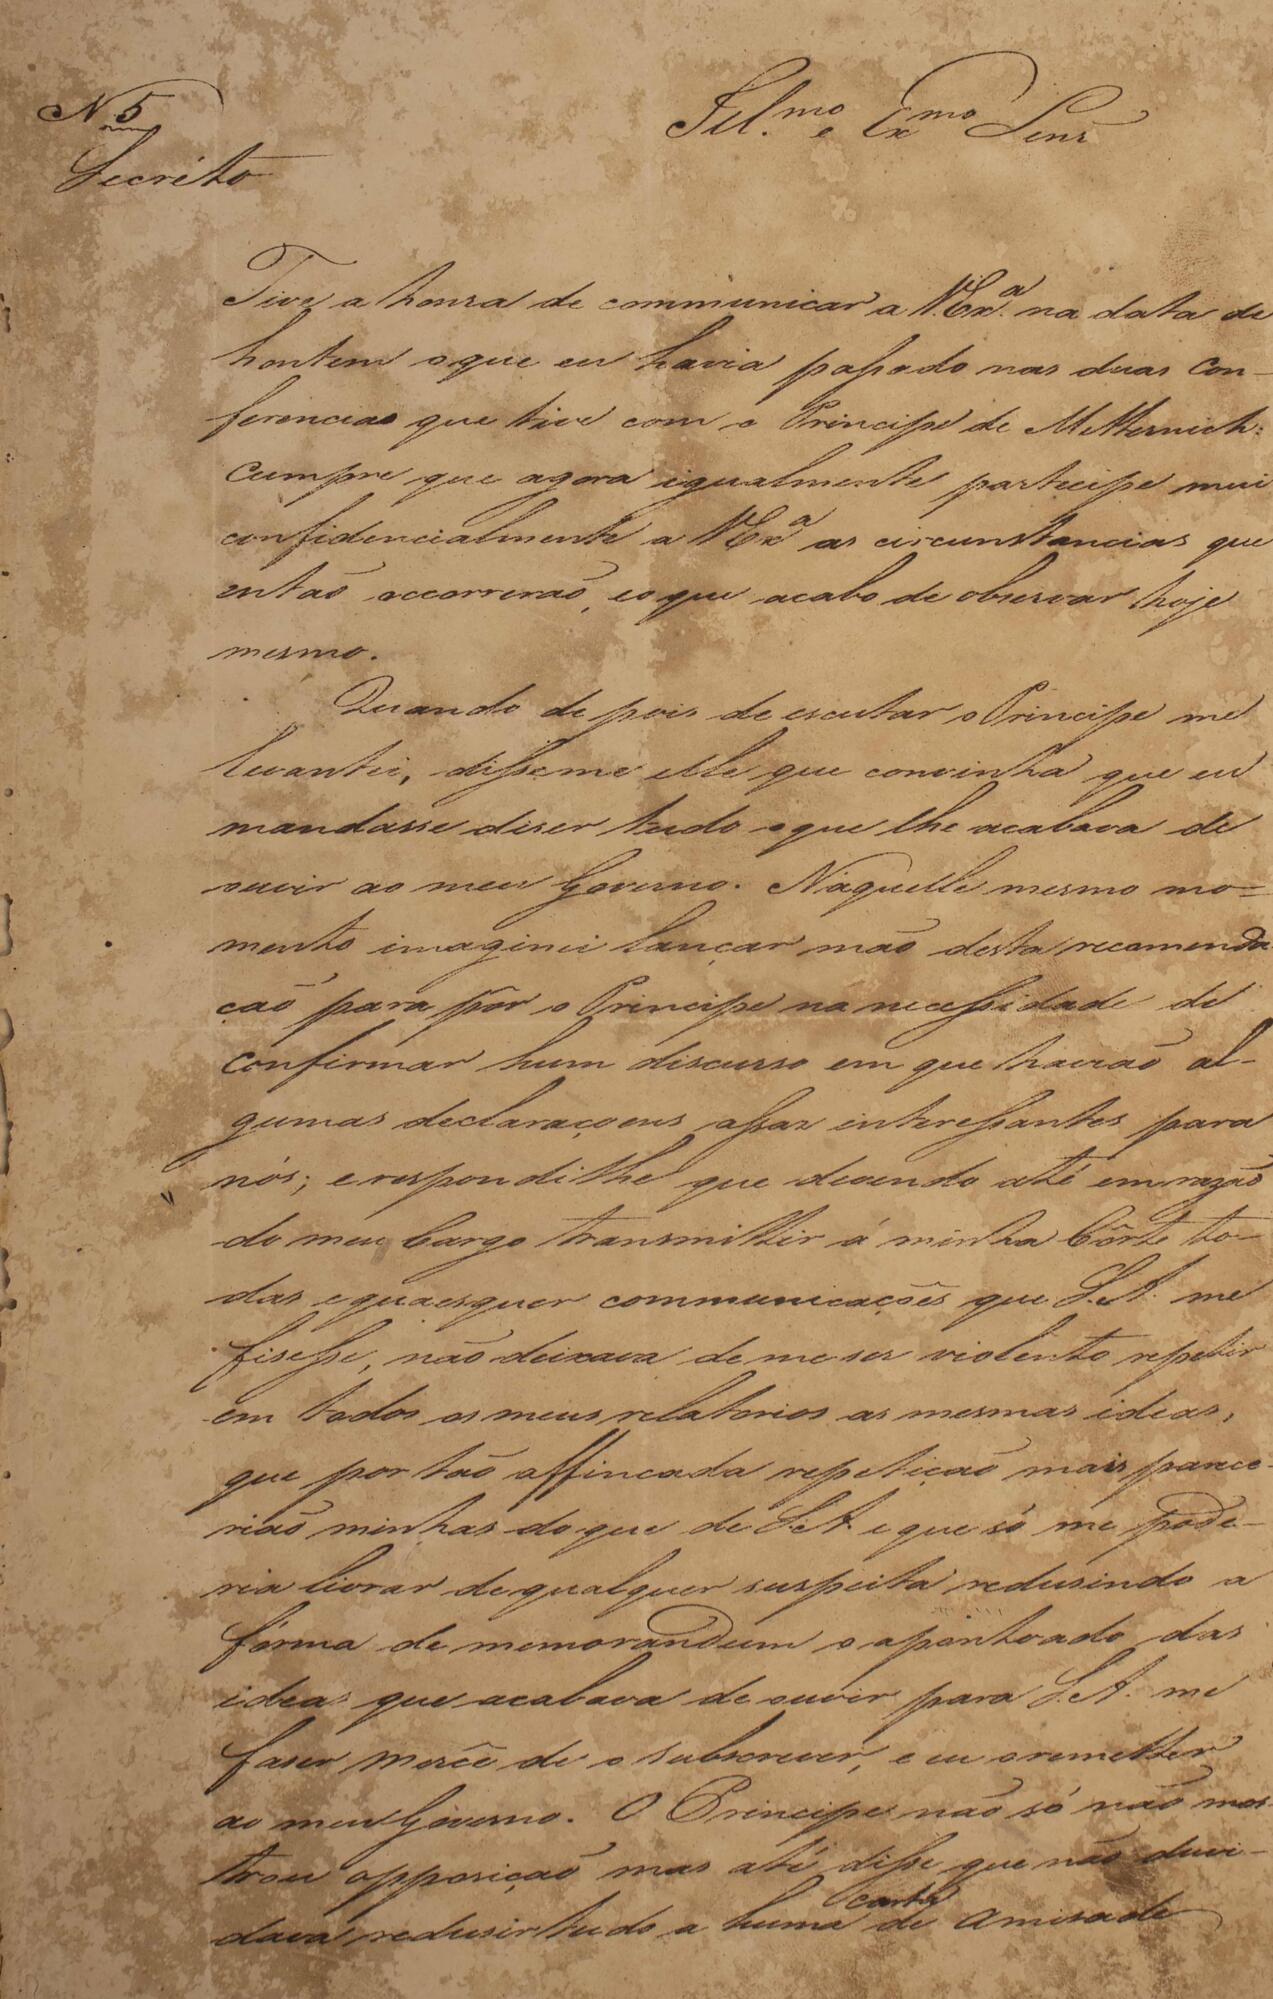 N. 5
Secréto
Ill.mo e Exmo Senr
Tive a honra de communicar a V.Exa. na data de
hontem o que eu havia passado nas duas con-
ferencias que tive com o Principe de Metternich:
cumpre que agora igualmente participe mui
confidencialmente a V.Exa as circunstancias que
então occorrerão, e o que acabo de observar hoje
mesmo.
Quando depois de escutar o Principe me
levantei, disseme elle que convinha que eu
mandasse diser tudo o que lhe acabava de
ouvir ao meu Governo. Naquelle mesmo mo=
mento imaginei lançar mão desta recomenda
ção para pôr o Principe na necessidade de
confirmar hum discurso em que havião al-
gumas declaraçoens assaz interessantes para
nós; e respondilhe que devendo até em razão
do meu Cargo transmittir á minha Côrte to-
das e quaesquer communicações que S.A. me
fisesse, não deixava de me ser violento repetir
em todos os meus relatorios as mesmas ideas,
que por tão affincada repetição mais parece-
rião minhas do que de S.A. e que só me pode-
ria livrar de qualquer suspeita redusindo a
fórma de memorandum o apontoado das
ideas que acabava de ouvir para S.A. me
faser mercê de o subscrever, e eu o remetter
ao meu Governo. O Principe não só não mos
trou opposição mas até disse que não duvi-
dava redusir tudo a huma carta de amisade